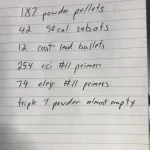 187 powder pellets
42 50cal sabots
12 cast lead bullets
254 cci #11 primers
74 eley #11 primers
triple 7 powder almost empty